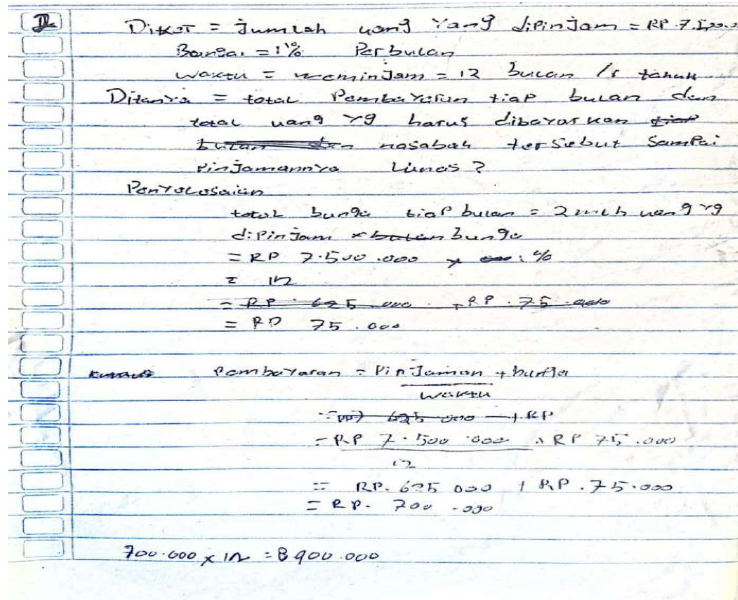 Diket = Jumlah uang yang dipinjam = RP 7.500.000
Bunga = 1% Perbulan
waktu = meminjam = 12 bulan / 1 tahun
Ditanya = total Pembayarun tiap bulan dan
total uang yg harus dibayarkan tiap
bulan dan nasabah tersebut Sampai
Pinjamannya Lunas ?
Penyelesaian
total bunga tiap bulan = Jumlh uang yg
dipinjam x bulan bunga
= RP 7.500.000 x 1%
= 12
= RP. 625.000 + RP. 75.000
= RP 75.000
Pembayaran = Pinjaman + bunga
waktu
= RP 625 000 + RP
= RP 7.500.000 + RP 75.000
12
= RP. 625 000 + RP. 75.000
= RP. 700.000
700.000 x 12 = 8 400.000